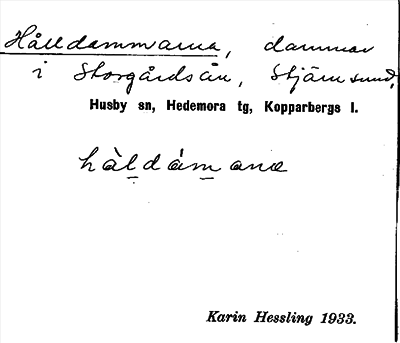 Hålldammarna, dammar
i Storgårdsån, Stjärnsund,
Husby sn, Hedemora tg, Kopparbergs l.
hàldámanα
Karin Hessling 1933.